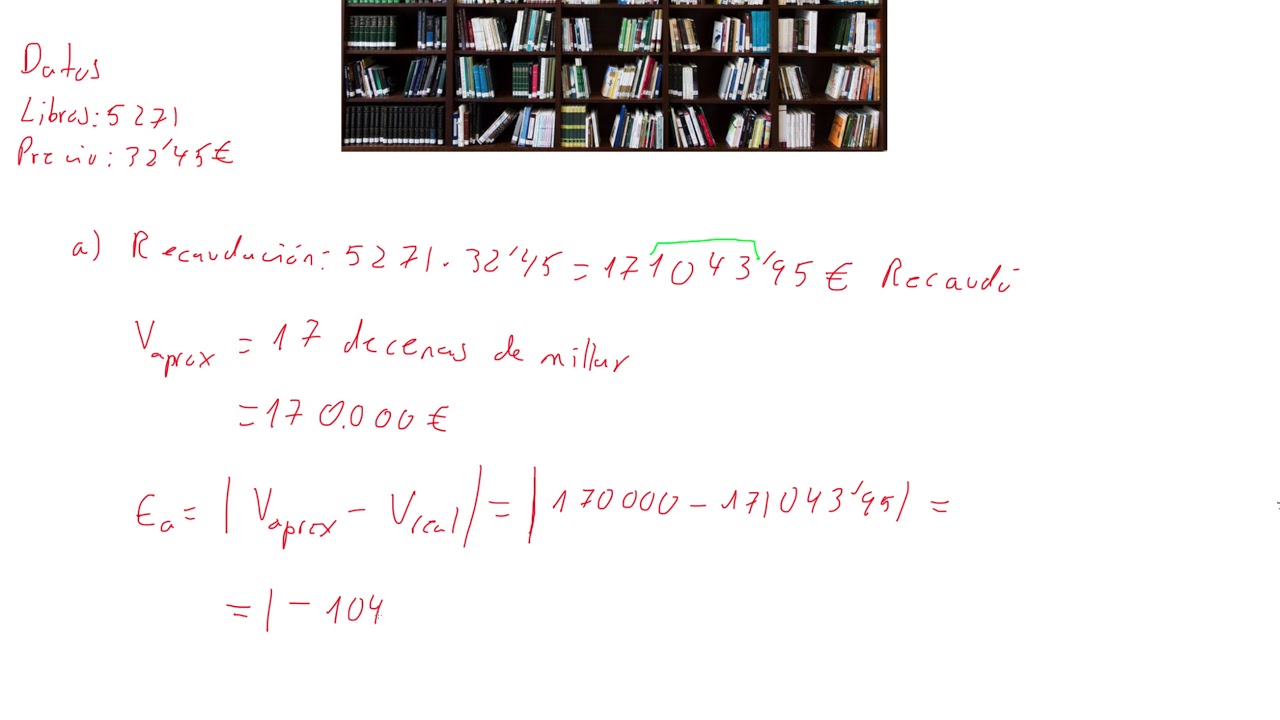 Datos
Libros: 5271
Precio: 32'45€
a) Recaudación: 5271 · 32'45 = 171043'95 € Recaudó
Vaprox = 17 decenas de millar
= 170.000 €
Ea = | Vaprox - Vreal | = | 170000 - 171043'95 | =
= | - 104